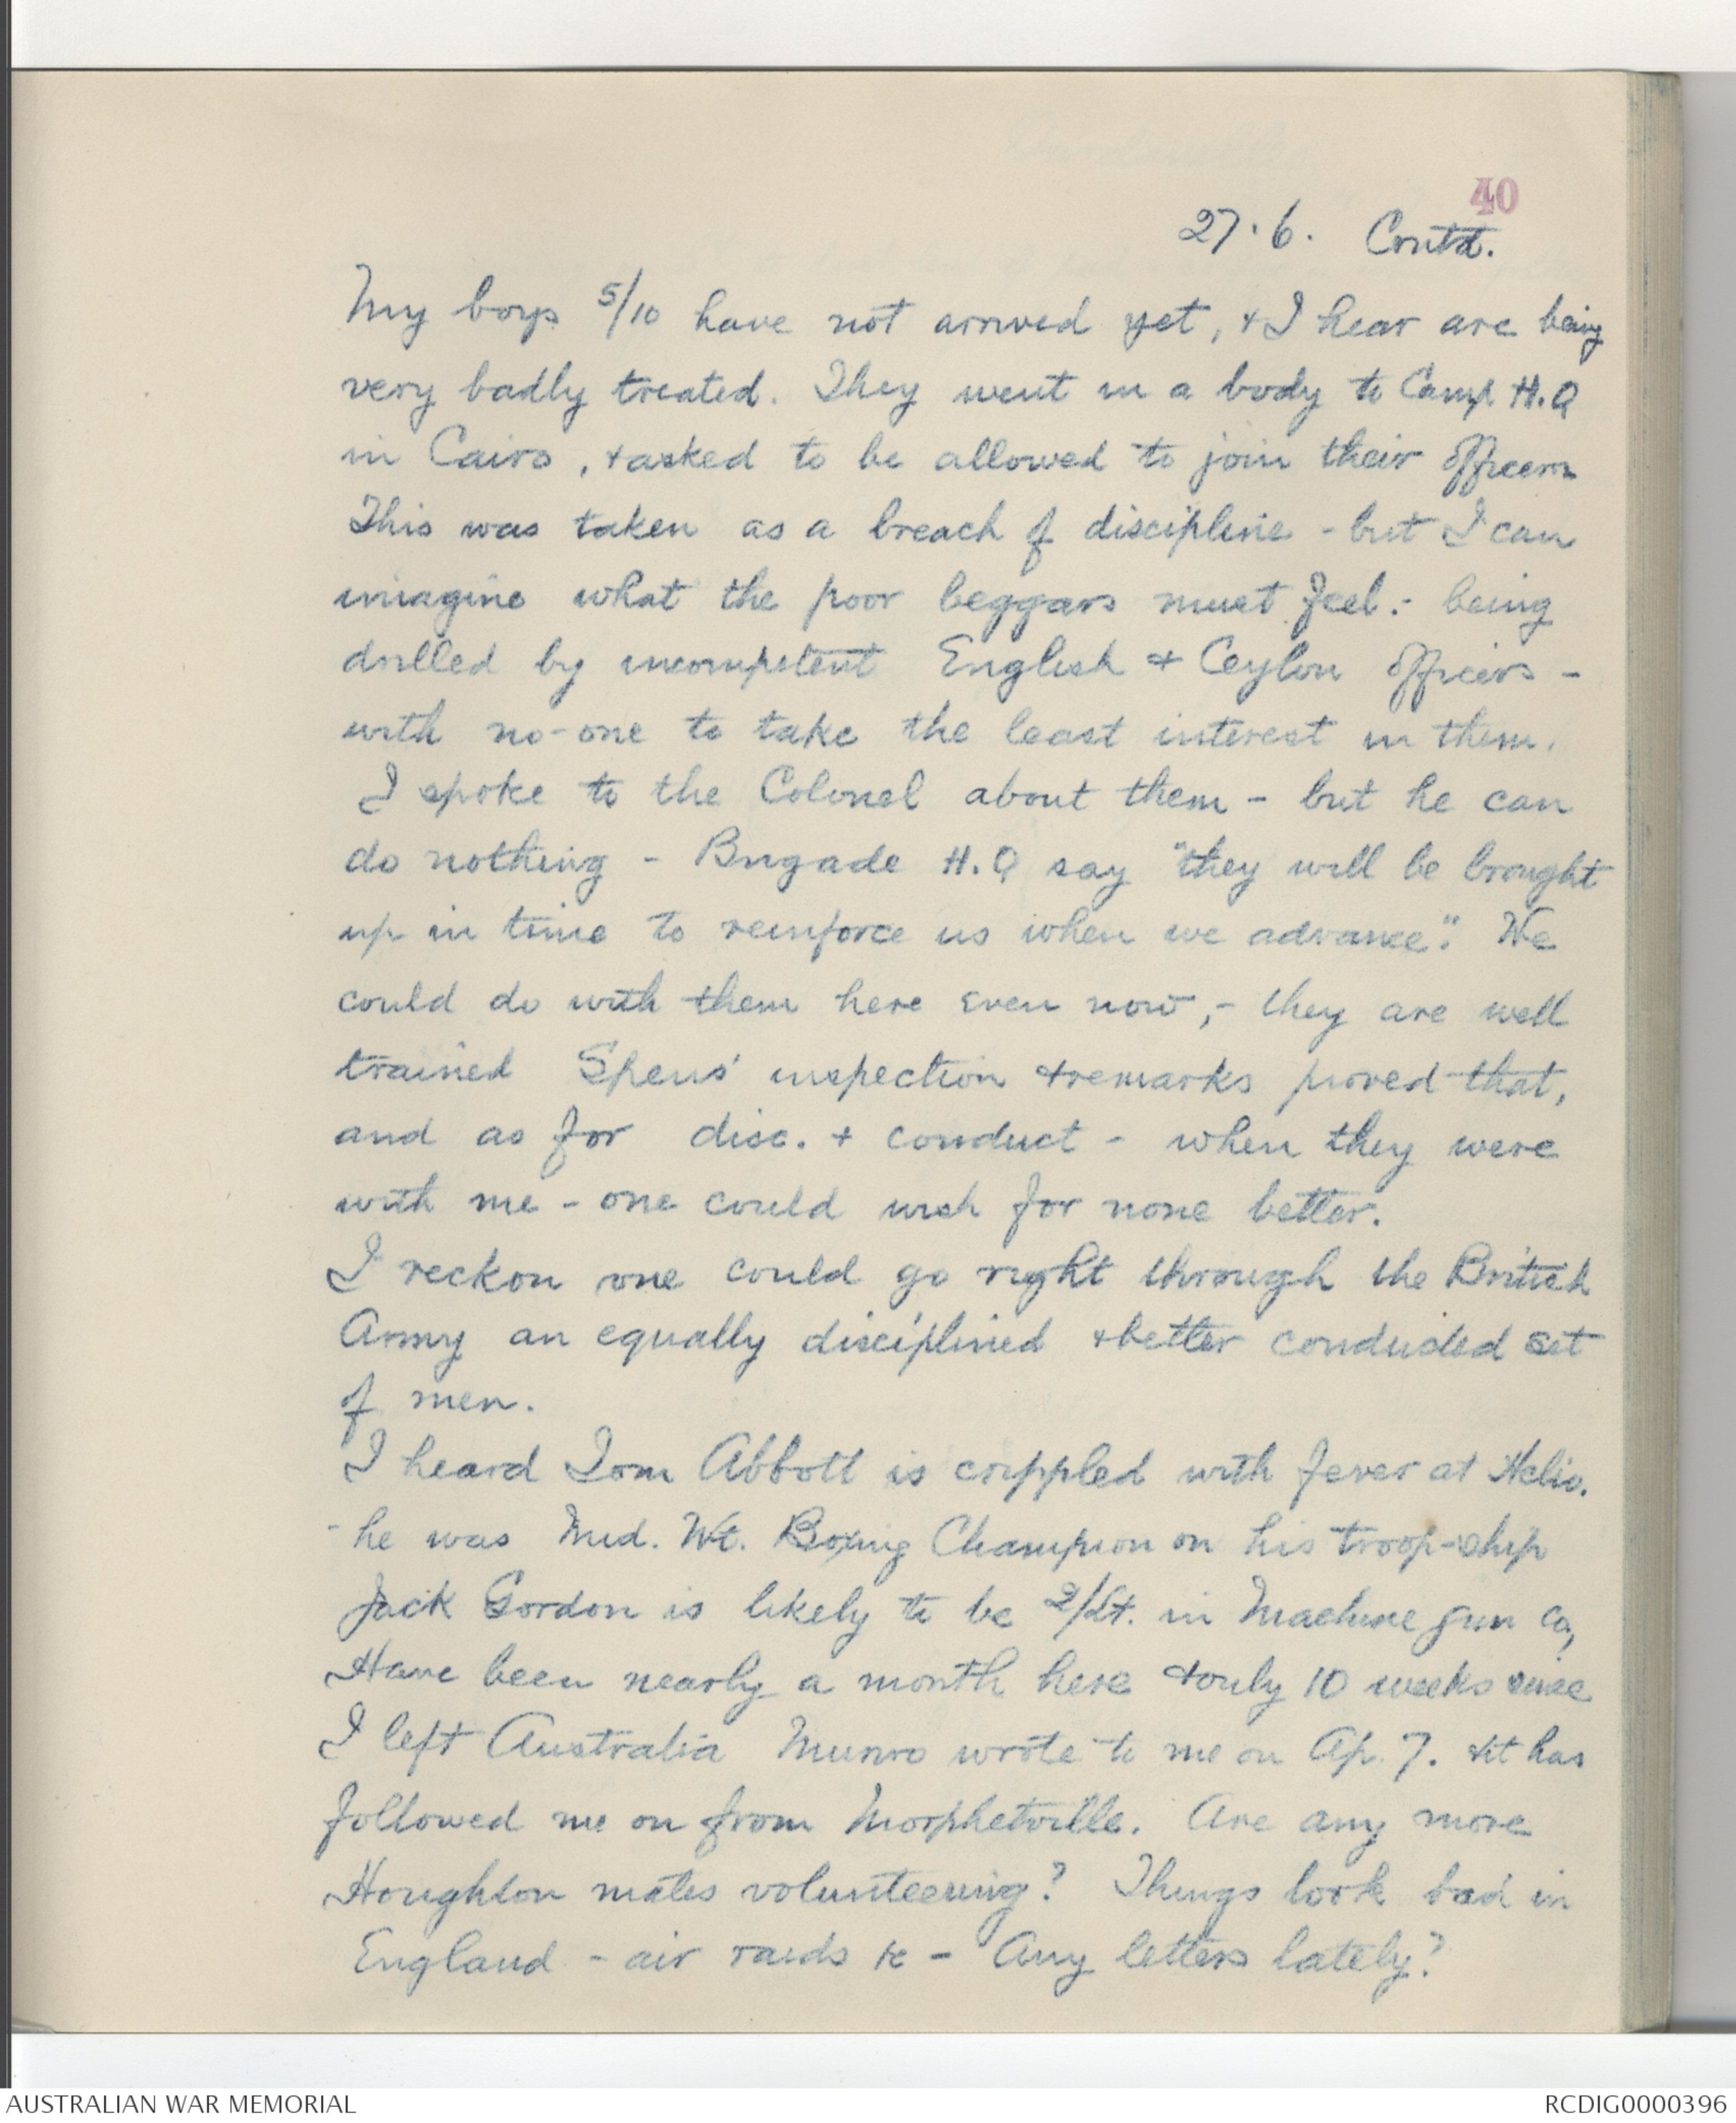 40
27.6. Contd.
My boys 5/10 have not arrived yet, & I hear are being
very badly treated. They went in a body to Camp H.Q
in Cairo, & asked to be allowed to join their officers
This was taken as a breach of discipline - but I can
imagine what the poor beggars must feel:- being
drilled by incompetent English & Ceylon officers -
with no-one to take the least interest in them.
I spoke to the Colonel about them - but he can
do nothing - Brigade H.Q say "they will be brought
up in time to reinforce us when we advance". We
could do with them here even now,- they are well
trained Spens' inspection & remarks proved that,
and as for disc. & conduct - when they were
with me - one could wish for none better.
I reckon one could go right through the British
Army an equally disciplined & better conducted set
of men.
I heard Tom Abbott is crippled with fever at Helio.
- he was Mid. Wt. Boxing Champion on his troop-ship
Jack Gordon is likely to be 2/Lt. in Machine gun Co,
Have been nearly a month here & only 10 weeks since
I left Australia Munro wrote to me on Ap. 7. & it has
followed me on from Morphetville. Are any more
Houghton mates volunteering? Things look bad in
England - air raids &c - Any letters lately?
AUSTRALIAN WAR MEMORIAL
RCDIG0000396